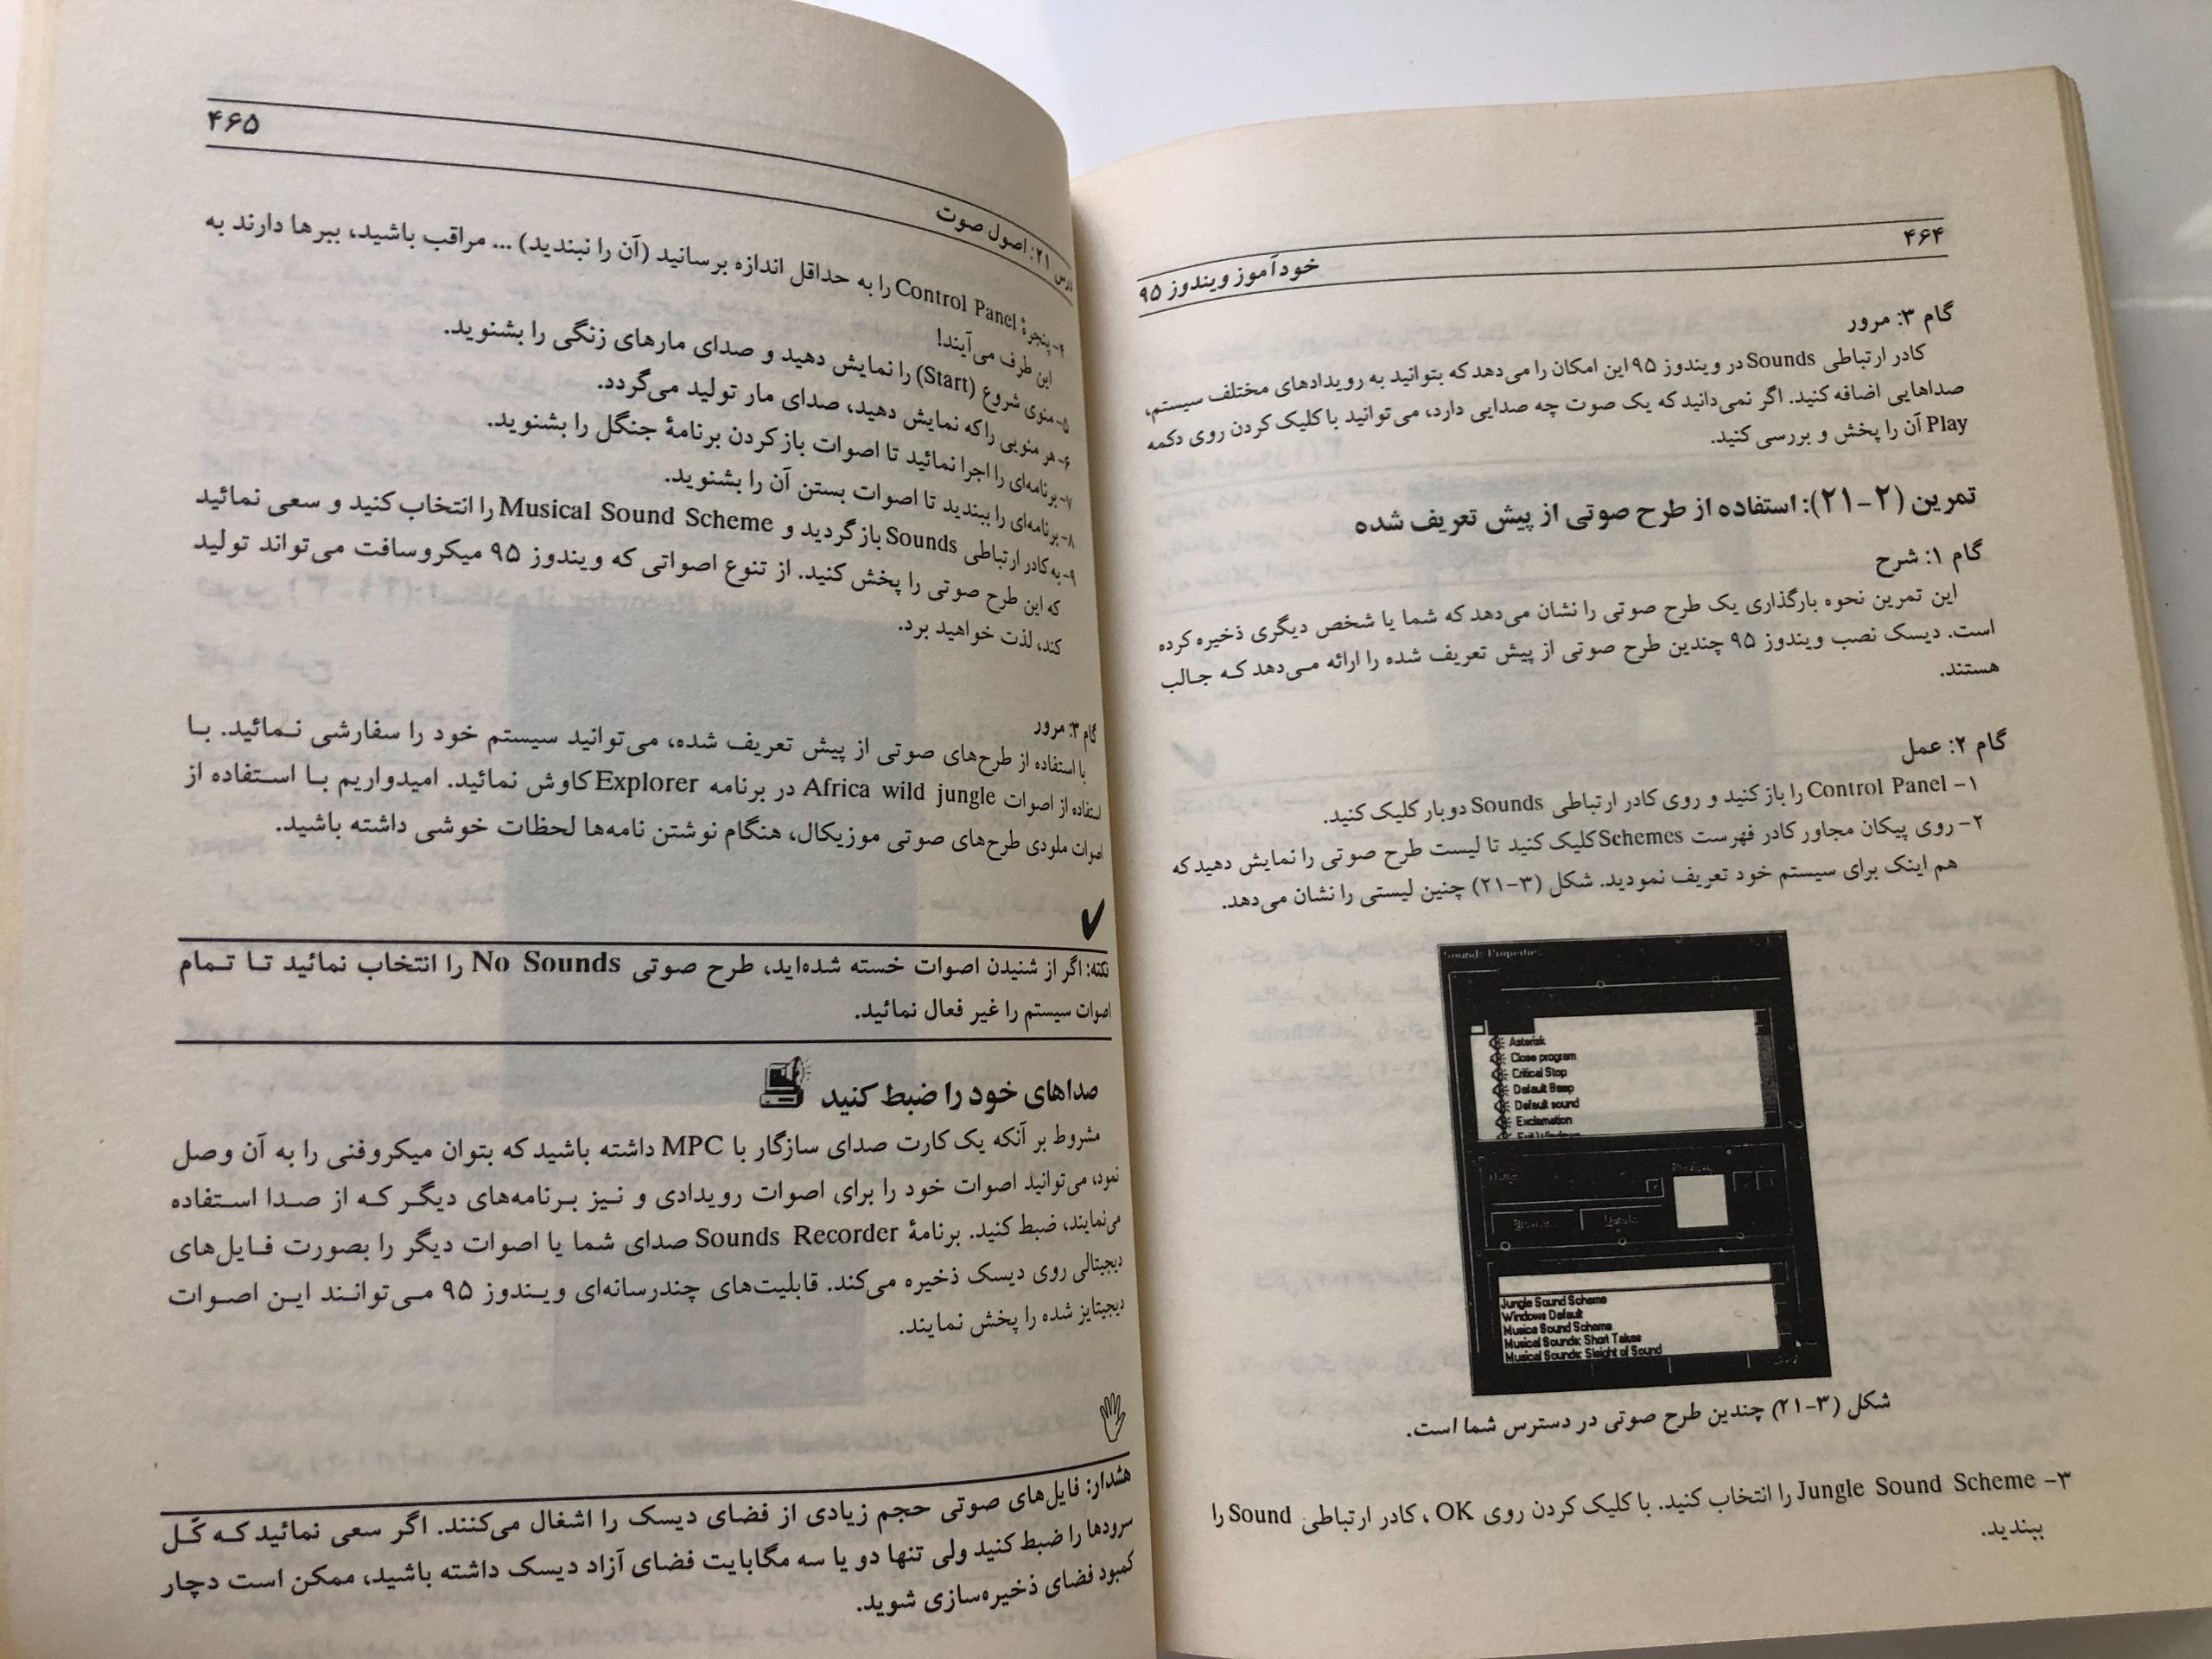 ۴۶۴
خودآموز ویندوز ۹۵
گام ۳: مرور
کادر ارتباطی Sounds در ویندوز ۹۵ این امکان را می‌دهد که بتوانید به رویدادهای مختلف سیستم،
صداهایی اضافه کنید. اگر نمی‌دانید که یک صوت چه صدایی دارد، می‌توانید با کلیک کردن روی دکمه
Play آن را پخش و بررسی کنید.
تمرین (۲-۲۱): استفاده از طرح صوتی از پیش تعریف شده
گام ۱: شرح
این تمرین نحوه بارگذاری یک طرح صوتی را نشان می‌دهد که شما یا شخص دیگری ذخیره کرده
است. دیسک نصب ویندوز ۹۵ چندین طرح صوتی از پیش تعریف شده را ارائه می‌دهد که جالب
هستند.
گام ۲: عمل
۱- Control Panel را باز کنید و روی کادر ارتباطی Sounds دوبار کلیک کنید.
۲- روی پیکان مجاور کادر فهرست Schemes کلیک کنید تا لیست طرح صوتی را نمایش دهید که
هم اینک برای سیستم خود تعریف نمودید. شکل (۳-۲۱) چنین لیستی را نشان می‌دهد.
Sounds Properties
Asterisk
Close program
Critical Stop
Default Beep
Default sound
Exclamation
Exit Windows
Jungle Sound Scheme
Windows Default
Musica Sound Scheme
Musical Sounds: Short Takes
Musical Sounds: Sleight of Sound
شکل (۳-۲۱) چندین طرح صوتی در دسترس شما است.
۳- Jungle Sound Scheme را انتخاب کنید. با کلیک کردن روی OK، کادر ارتباطی Sound را
ببندید.
۴۶۵
درس ۲۱: اصول صوت
۴- پنجرهٔ Control Panel را به حداقل اندازه برسانید (آن را نبندید) ... مراقب باشید، ببرها دارند به
این طرف می‌آیند!
۵- منوی شروع (Start) را نمایش دهید و صدای مارهای زنگی را بشنوید.
۶- هر منویی را که نمایش دهید، صدای مار تولید می‌گردد.
۷- برنامه‌ای را اجرا نمائید تا اصوات باز کردن برنامهٔ جنگل را بشنوید.
۸- برنامه‌ای را ببندید تا اصوات بستن آن را بشنوید.
۹- به کادر ارتباطی Sounds بازگردید و Musical Sound Scheme را انتخاب کنید و سعی نمائید
که این طرح صوتی را پخش کنید. از تنوع اصواتی که ویندوز ۹۵ میکروسافت می‌تواند تولید
کند، لذت خواهید برد.
گام ۳: مرور
با استفاده از طرح‌های صوتی از پیش تعریف شده، می‌توانید سیستم خود را سفارشی نمائید. با
استفاده از اصوات Africa wild jungle در برنامه Explorer کاوش نمائید. امیدواریم با استفاده از
اصوات ملودی طرح‌های صوتی موزیکال، هنگام نوشتن نامه‌ها لحظات خوشی داشته باشید.
نکته: اگر از شنیدن اصوات خسته شده‌اید، طرح صوتی No Sounds را انتخاب نمائید تا تمام
اصوات سیستم را غیر فعال نمائید.
صداهای خود را ضبط کنید
مشروط بر آنکه یک کارت صدای سازگار با MPC داشته باشید که بتوان میکروفنی را به آن وصل
نمود، می‌توانید اصوات خود را برای اصوات رویدادی و نیز برنامه‌های دیگر که از صدا استفاده
می‌نمایند، ضبط کنید. برنامهٔ Sounds Recorder صدای شما یا اصوات دیگر را بصورت فایل‌های
دیجیتالی روی دیسک ذخیره می‌کند. قابلیت‌های چندرسانه‌ای ویندوز ۹۵ می‌توانند این اصوات
دیجیتایز شده را پخش نمایند.
هشدار: فایل‌های صوتی حجم زیادی از فضای دیسک را اشغال می‌کنند. اگر سعی نمائید که کّل
سرودها را ضبط کنید ولی تنها دو یا سه مگابایت فضای آزاد دیسک داشته باشید، ممکن است دچار
کمبود فضای ذخیره‌سازی شوید.